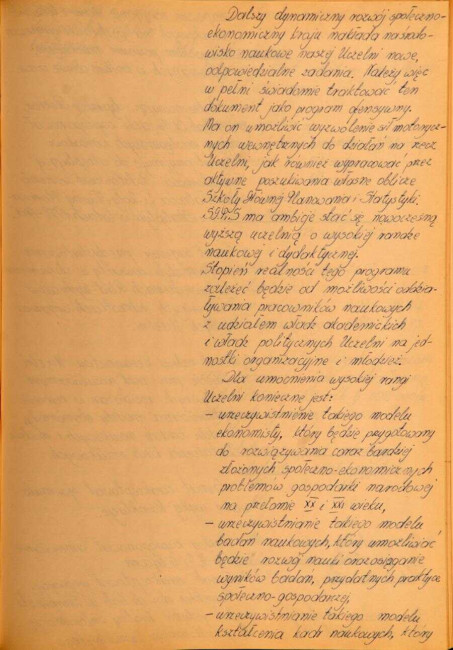 Dalszy dynamiczny rozwój społeczno-
ekonomiczny kraju nakłada na środo-
wisko naukowe naszej Uczelni nowe,
odpowiedzialne zadania. Należy więc
w pełni świadomie traktować ten
dokument jako program ofensywny.
Ma on umożliwić wyzwolenie sił motorycz-
nych wewnętrznych do działań na rzecz
Uczelni, jak również wypracować przez
aktywne poszukiwania własne oblicze
Szkoły Głównej Planowania i Statystyki.
SGPiS ma ambicje stać się nowoczesną
wyższą uczelnią o wysokiej randze
naukowej i dydaktycznej.
Stopień realności tego programu
zależeć będzie od możliwości oddzia-
ływania pracowników naukowych
z udziałem władz akademickich
i władz politycznych Uczelni na jed-
nostki organizacyjne i młodzież.
Dla umocnienia wysokiej rangi
Uczelni konieczne jest:
- urzeczywistnienie takiego modelu
ekonomisty, który będzie przygotowany
do rozwiązywania coraz bardziej
złożonych społeczno-ekonomicznych
problemów gospodarki narodowej
na przełomie XX i XXI wieku,
- urzeczywistnianie takiego modelu
badań naukowych, który umożliwiać
będzie rozwój nauki oraz osiąganie
wyników badań, przydatnych praktyce
społeczno-gospodarczej,
- urzeczywistnianie takiego modelu
kształcenia kadr naukowych, który